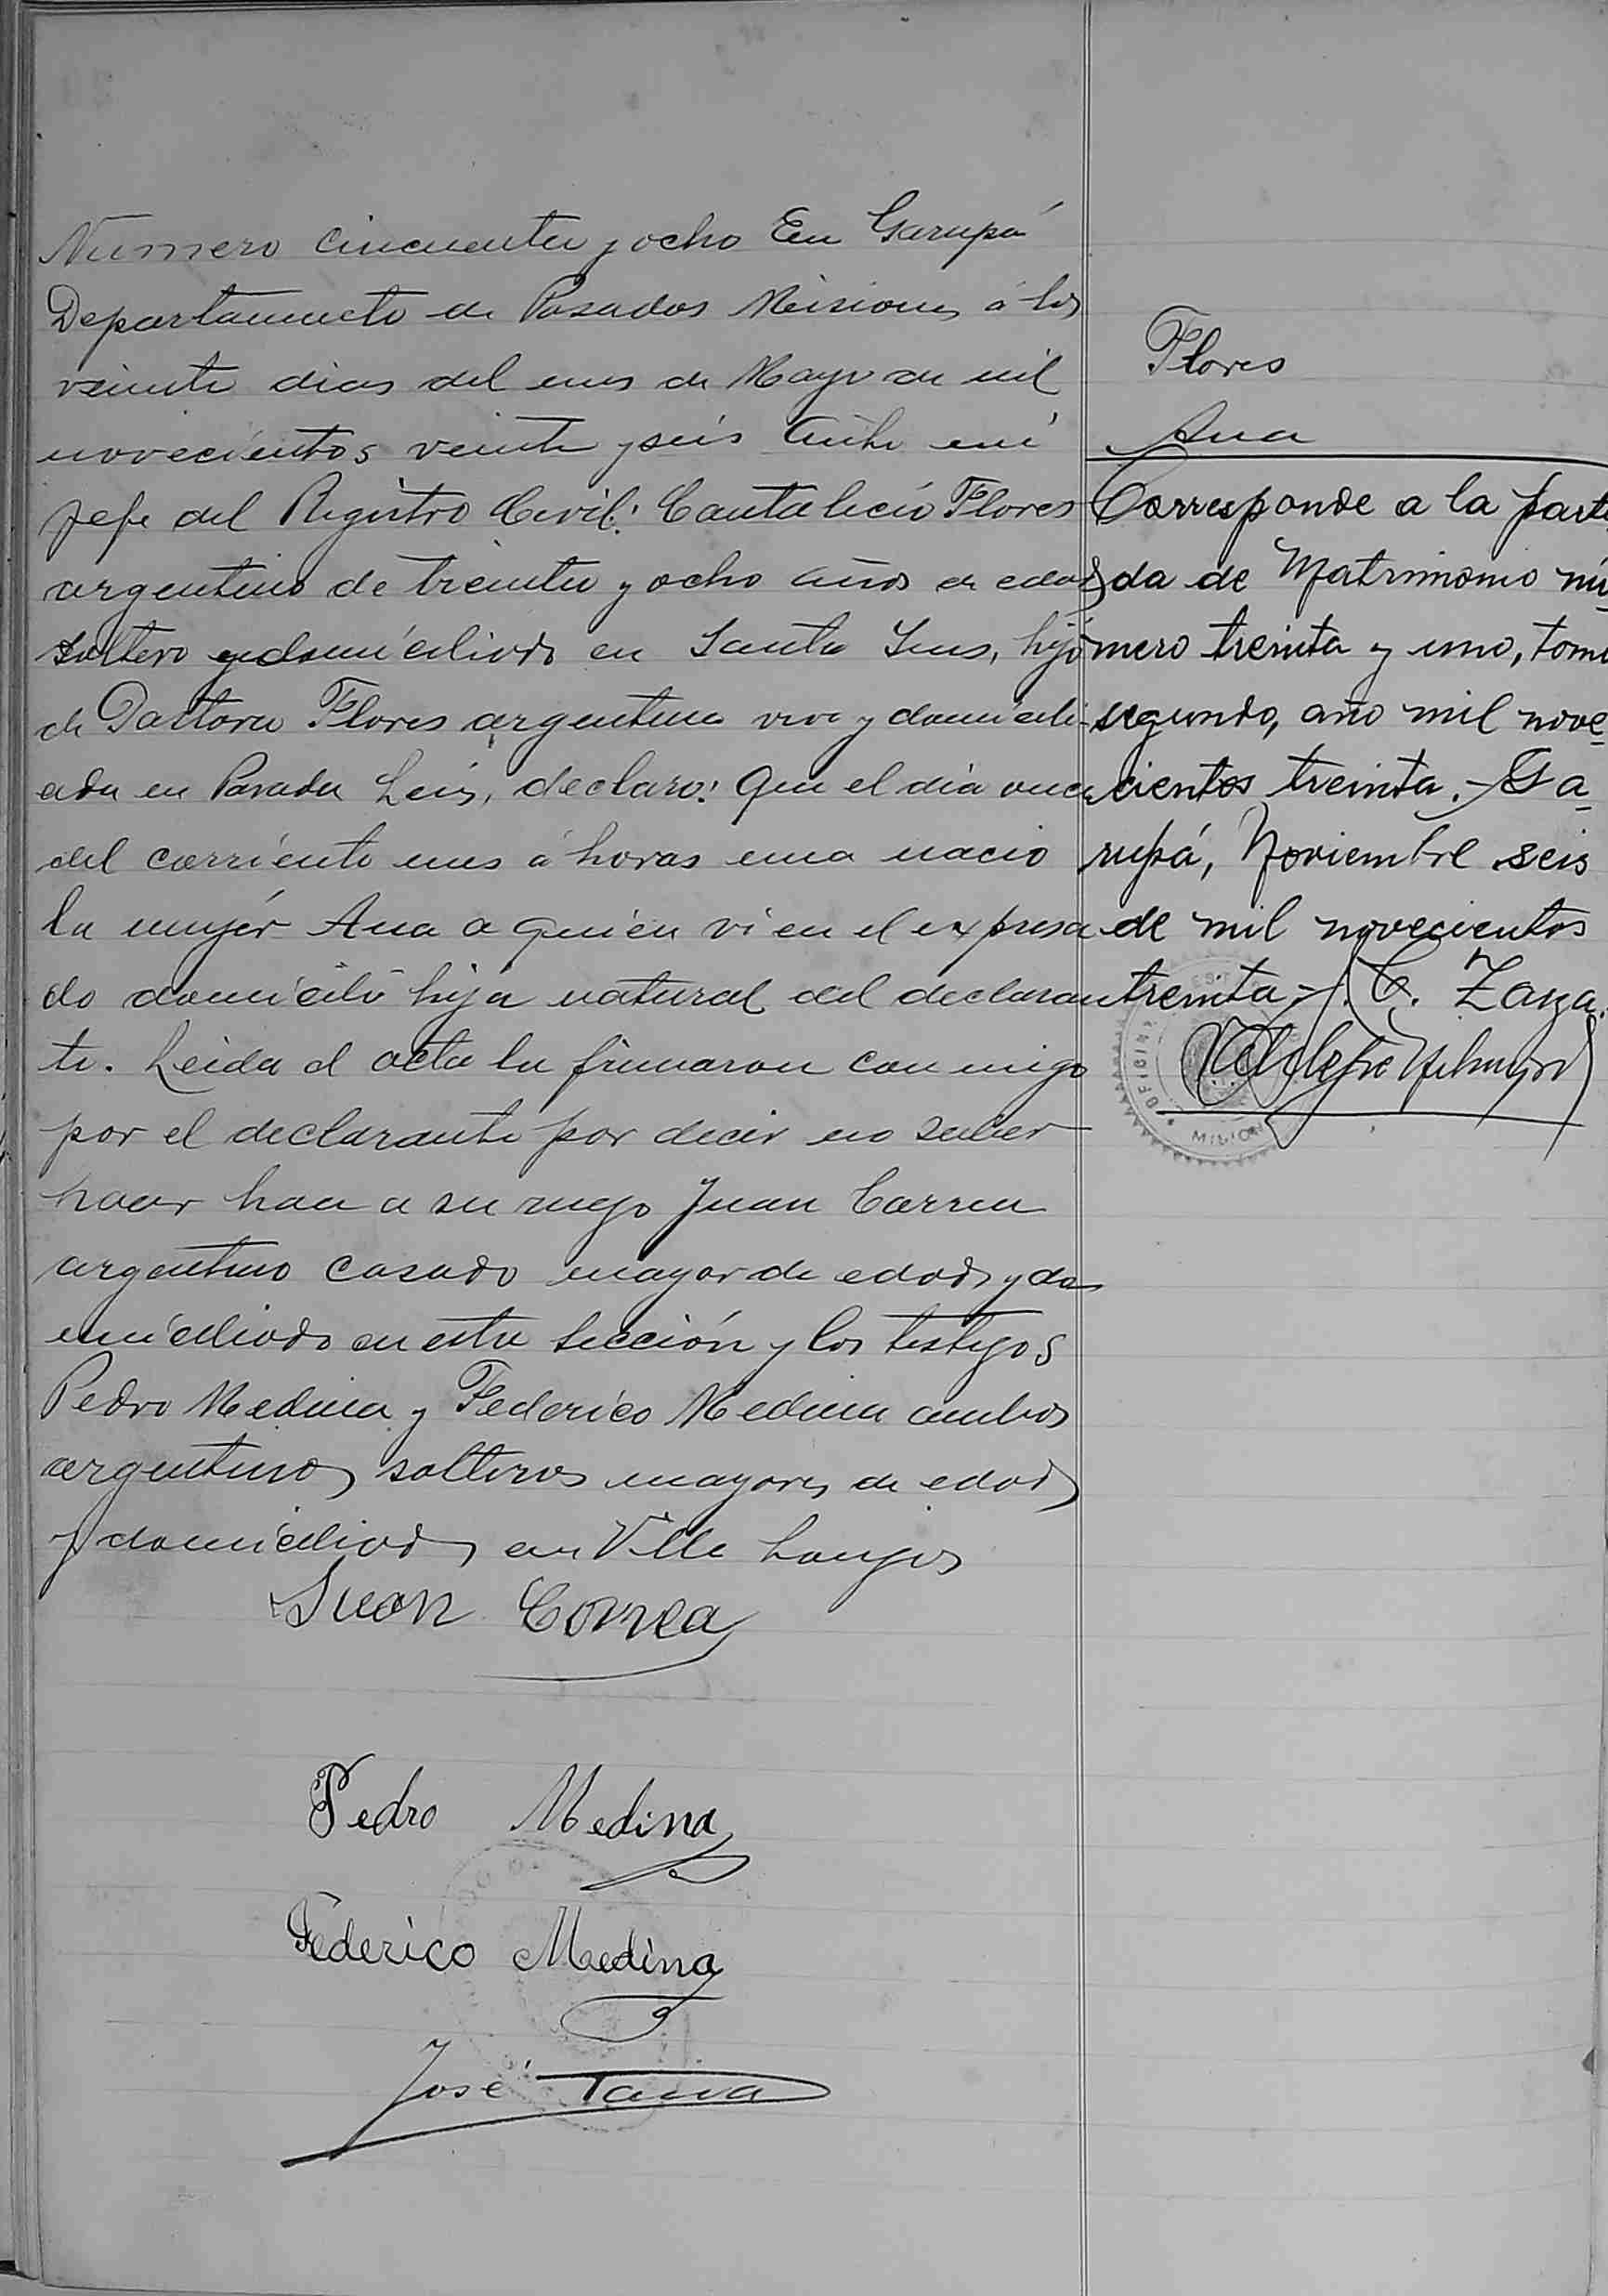 Numero cincuenta y ocho En Garupá
Departamento de Posadas Misiones á los
veinte dias del mes de Mayo de mil
novecientos veinte y seis Ante mi
Jefe del Registro Civil: Cantalicio Flores
argentino de treinta y ocho años de edad
soltero y domiciliado en Santa Ines, hijo
de Pastora Flores argentina vive y domicili-
ada en Parada Leis, declaro: Que el dia once
del corriente mes á horas una nacio
la mujer Ana a quien vi en el expresa
do domicilio hija natural del declaran
te. Leida el acta la firmaron conmigo
por el declarante por decir no saber
hacer hace a su ruego Juan Correa
argentino casado mayor de edad y do
miciliado en esta Sección y los testigos
Pedro Medina y Federico Medina ambos
argentinos solteros mayores de edad
y domiciliados en Villa Lanjes
Juan Correa
Pedro Medina
Federico Medina
José
Flores
Ana
Corresponde a la parti
da de Matrimonio nú
mero treinta y uno, tomo
segundo, año mil nove
cientos treinta.- Ga
rupá, Noviembre seis
de mil novecientos
treinta.- C. Zanza.
OFICINA
MISIONES